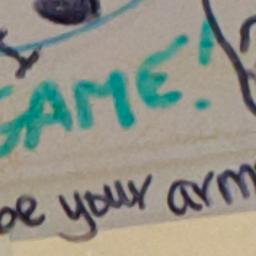 GAME!
be your arm